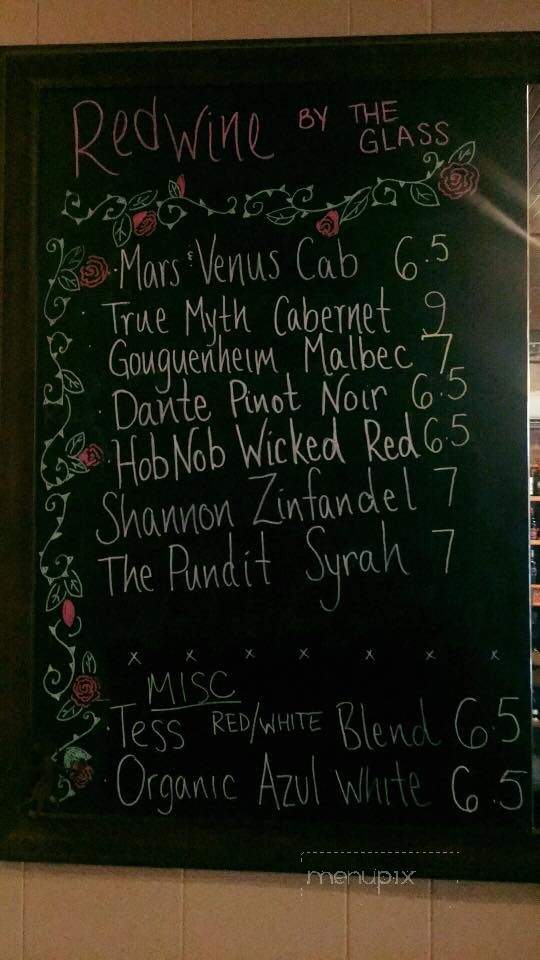 Red Wine BY THE GLASS
Mars & Venus Cab 6.5
True Myth Cabernet 9
Gouguenheim Malbec 7
Dante Pinot Noir 6.5
HobNob Wicked Red 6.5
Shannon Zinfandel 7
The Pundit Syrah 7
x x x x x x x
MISC
Tess RED/WHITE Blend 6.5
Organic Azul White 6.5
menupix